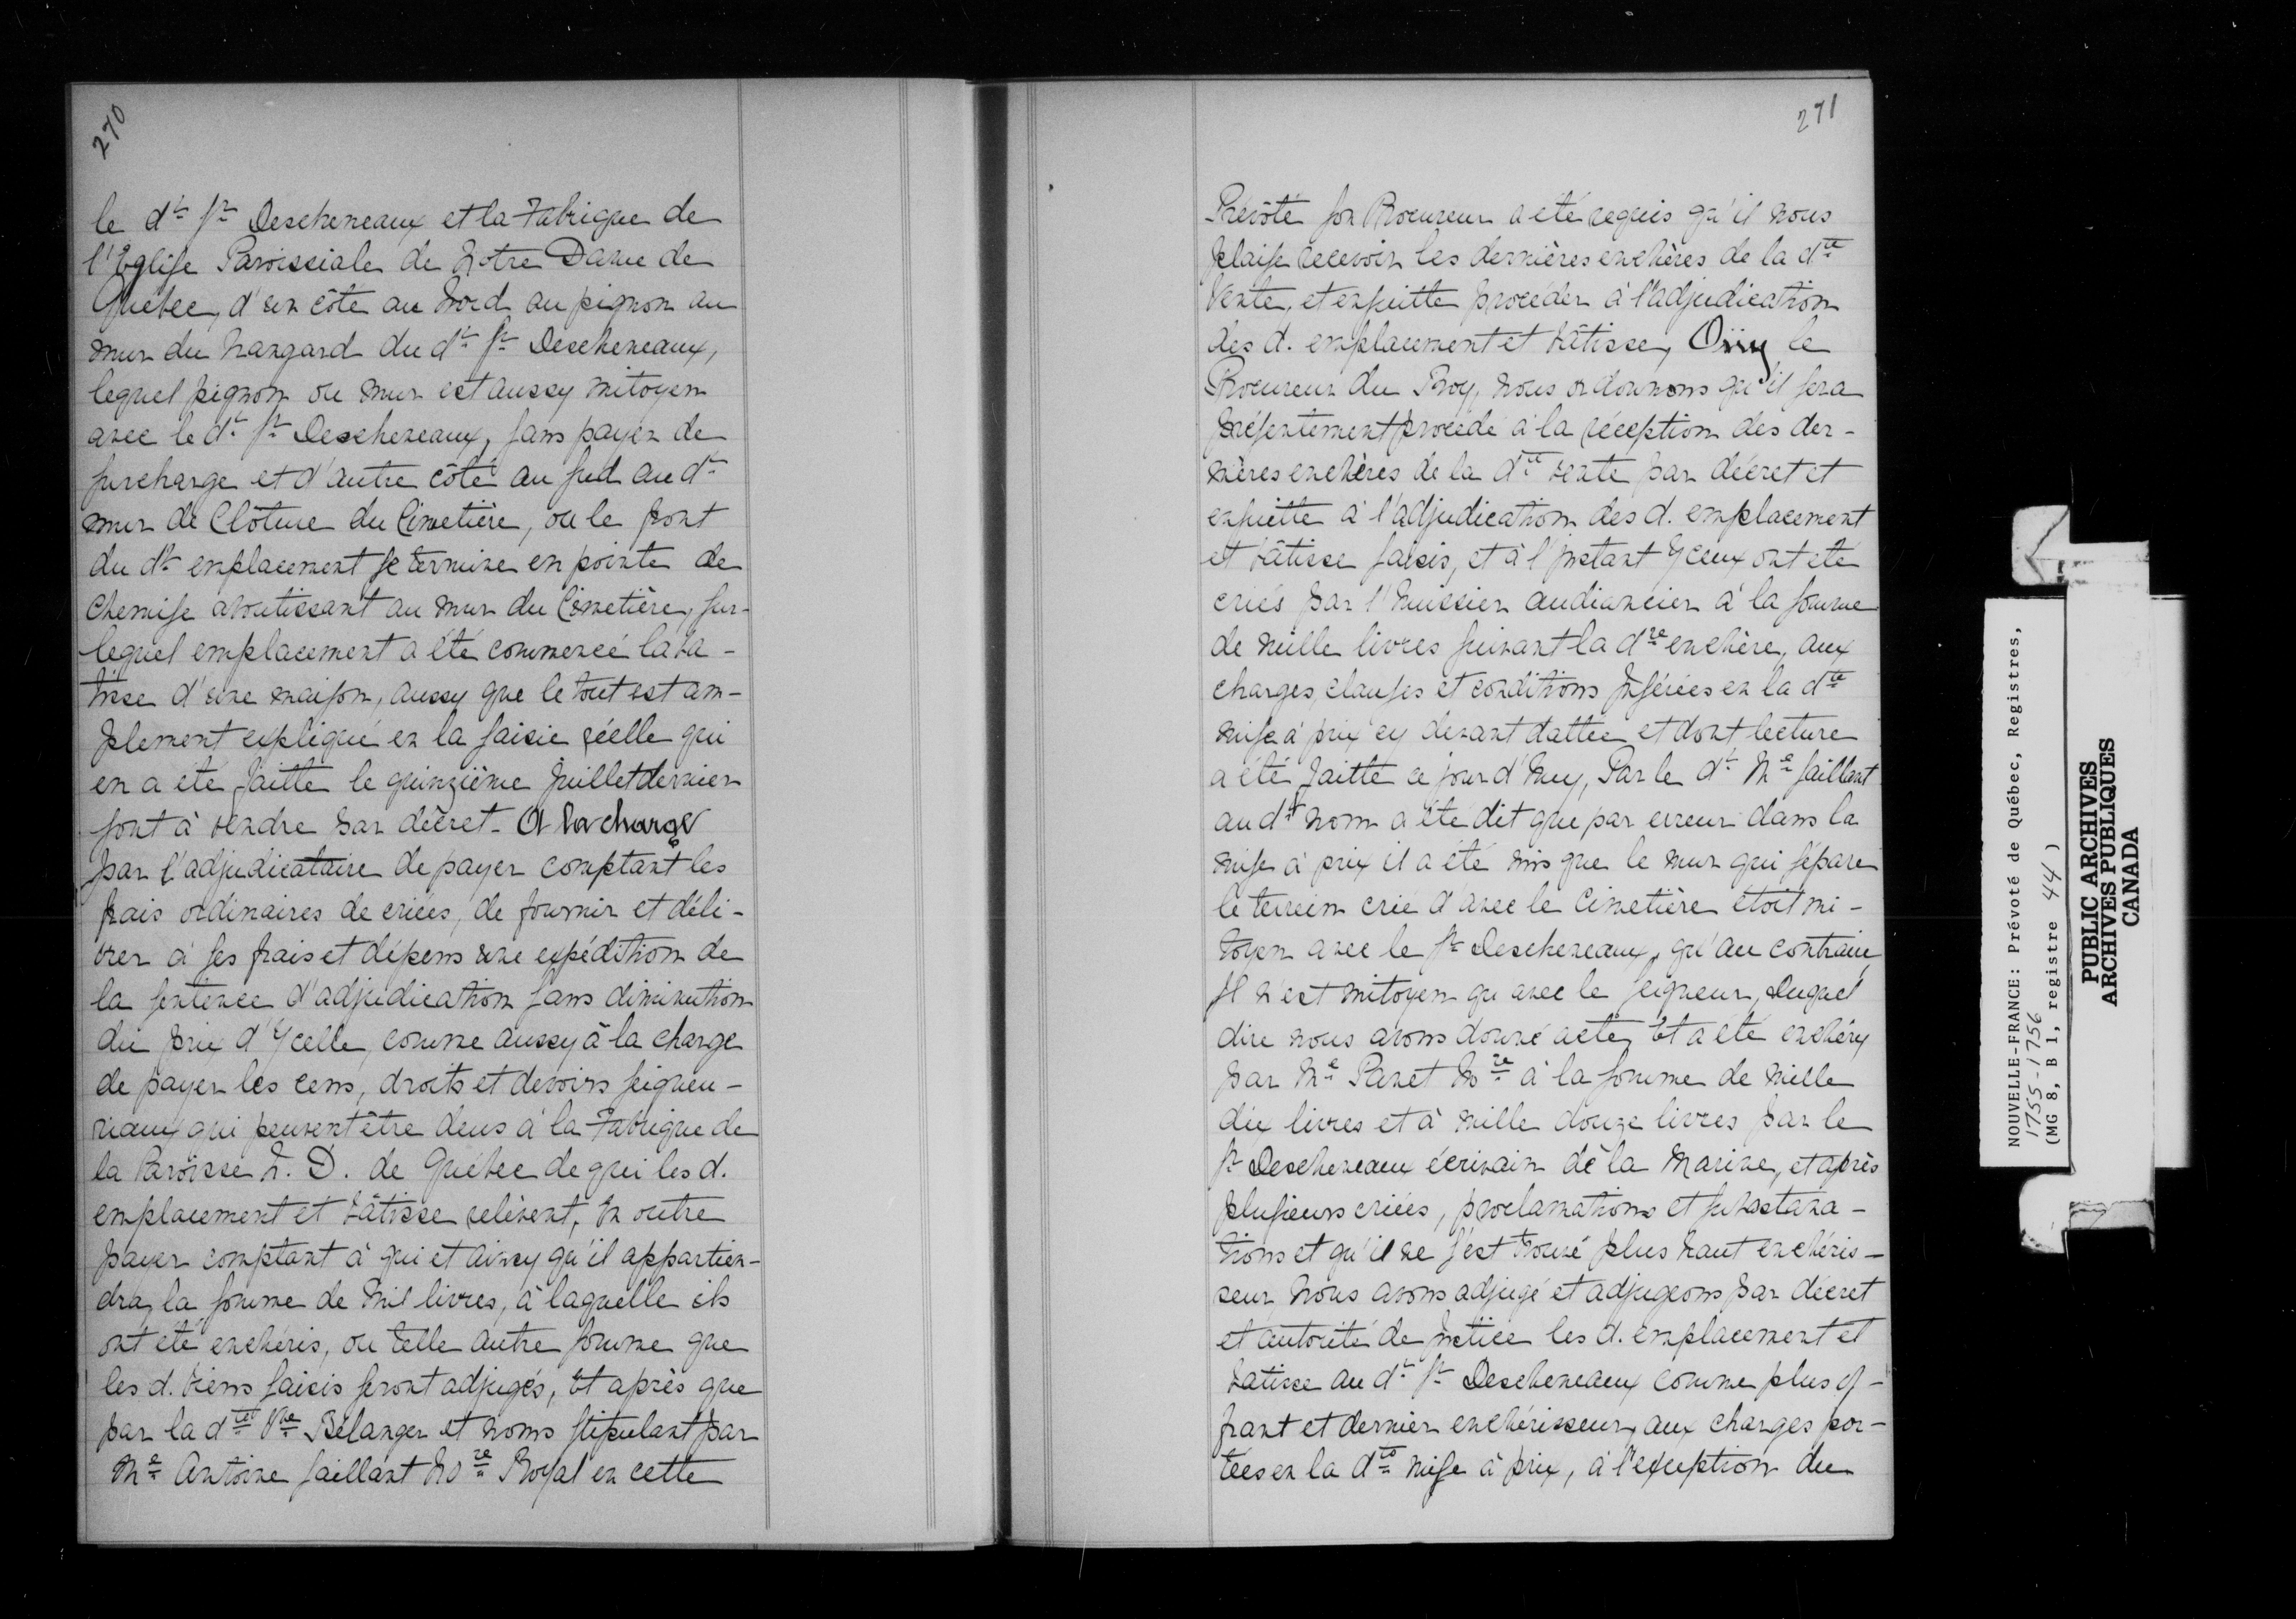 270
le dt. Sr. Descheneaux et la Fabrique de
l'Eglise Paroissiale de Notre Dame de
Québec, d'un côté au Nord au pignon au
mur du hangard du dt. Sr. Descheneaux,
lequel pignon ou mur est aussy mitoyen
avec le dt. Sr. Descheneaux, sans payer de
surcharge et d'autre côté au sud au dt.
mur de Clôture du Cimetière, ou le front
du dt. emplacement se termine en pointe de
Chemise aboutissant au mur du Cimetière, sur-
lequel emplacement a été commencé la ba-
tisse d'une maison, aussy que le tout est am-
plement expliqué en la saisie réelle qui
en a été faitte le quinzième Juillet dernier
sont à vendre par décret. A la charge
par l'adjudicataire de payer comptant les
frais ordinaires de criées, de fournir et déli-
vrer à ses frais et dépens une expédition de
la sentence d'adjudication sans diminution
du prix d'Ycelle, comme aussy à la charge
de payer les cens, droits et devoirs seigneu-
riaux qui peuvent être deus à la Fabrique de
la Paroisse N. D. de Québec de qui les d.
emplacement et bâtisse relèvent, En outre
payer comptant à qui et ainsy qu'il appartien-
dra, la somme de Mil livres, à laquelle ils
ont été enchéris, ou telle autre somme que
les d. biens saisis seront adjugés, Et après que
par la dte. Vve. Bélanger et noms stipulant par
Me. Antoine Saillant Nore. Royal en cette
271
Prévôté son Procureur a été requis qu'il nous
plaise recevoir les dernières enchères de la dte.
Vente, et ensuitte procéder à l'adjudication
des d. emplacement et bâtisse, Oüy le
Procureur du Roy, nous ordonnons qu'il sera
présentement procédé à la réception des der-
nières enchères de la dte. vente par décret et
ensuitte à l'adjudication des d. emplacement
et bâtisse saisis, et à l'Instant Yceux ont été
criés par l'huissier audiancier à la somme
de mille livres suivant la dre. enchère, aux
charges, clauses et conditions Insérées en la dte.
mise à prix cy devant dattée et dont lecture
a été faitte ce jour d'huy, Par le dt. Me. Saillant
au dt. nom a été dit que par erreur dans la
mise à prix il a été mis que le mur qui sépare
le terrein crié d'avec le Cimetière étoit mi-
toyen avec le Sr. Descheneaux, qu'au contraire
Il n'est mitoyen qu'avec le seigneur, Duquel
dire nous avons donné acte, Et a été enchéry
par Me. Panet Nore. à la somme de mille
dix livres et à mille douze livres par le
Sr. Descheneaux écrivain de la Marine, et après
plusieurs criées, proclamations et subastana-
tions et qu'il ne s'est trouvé plus haut enchéris-
seur, Nous avons adjugé et adjugeons par décret
et autorité de justice les d. emplacement et
batisse au dt. Sr. Descheneaux comme plus of-
frant et dernier enchérisseur, aux charges por-
tées en la dte. mise à prix, à l'exception du
NOUVELLE-FRANCE: Prévoté de Québec, Registres,
1755-1756
(MG 8, B 1, registre 44)
PUBLIC ARCHIVES
ARCHIVES PUBLIQUES
CANADA